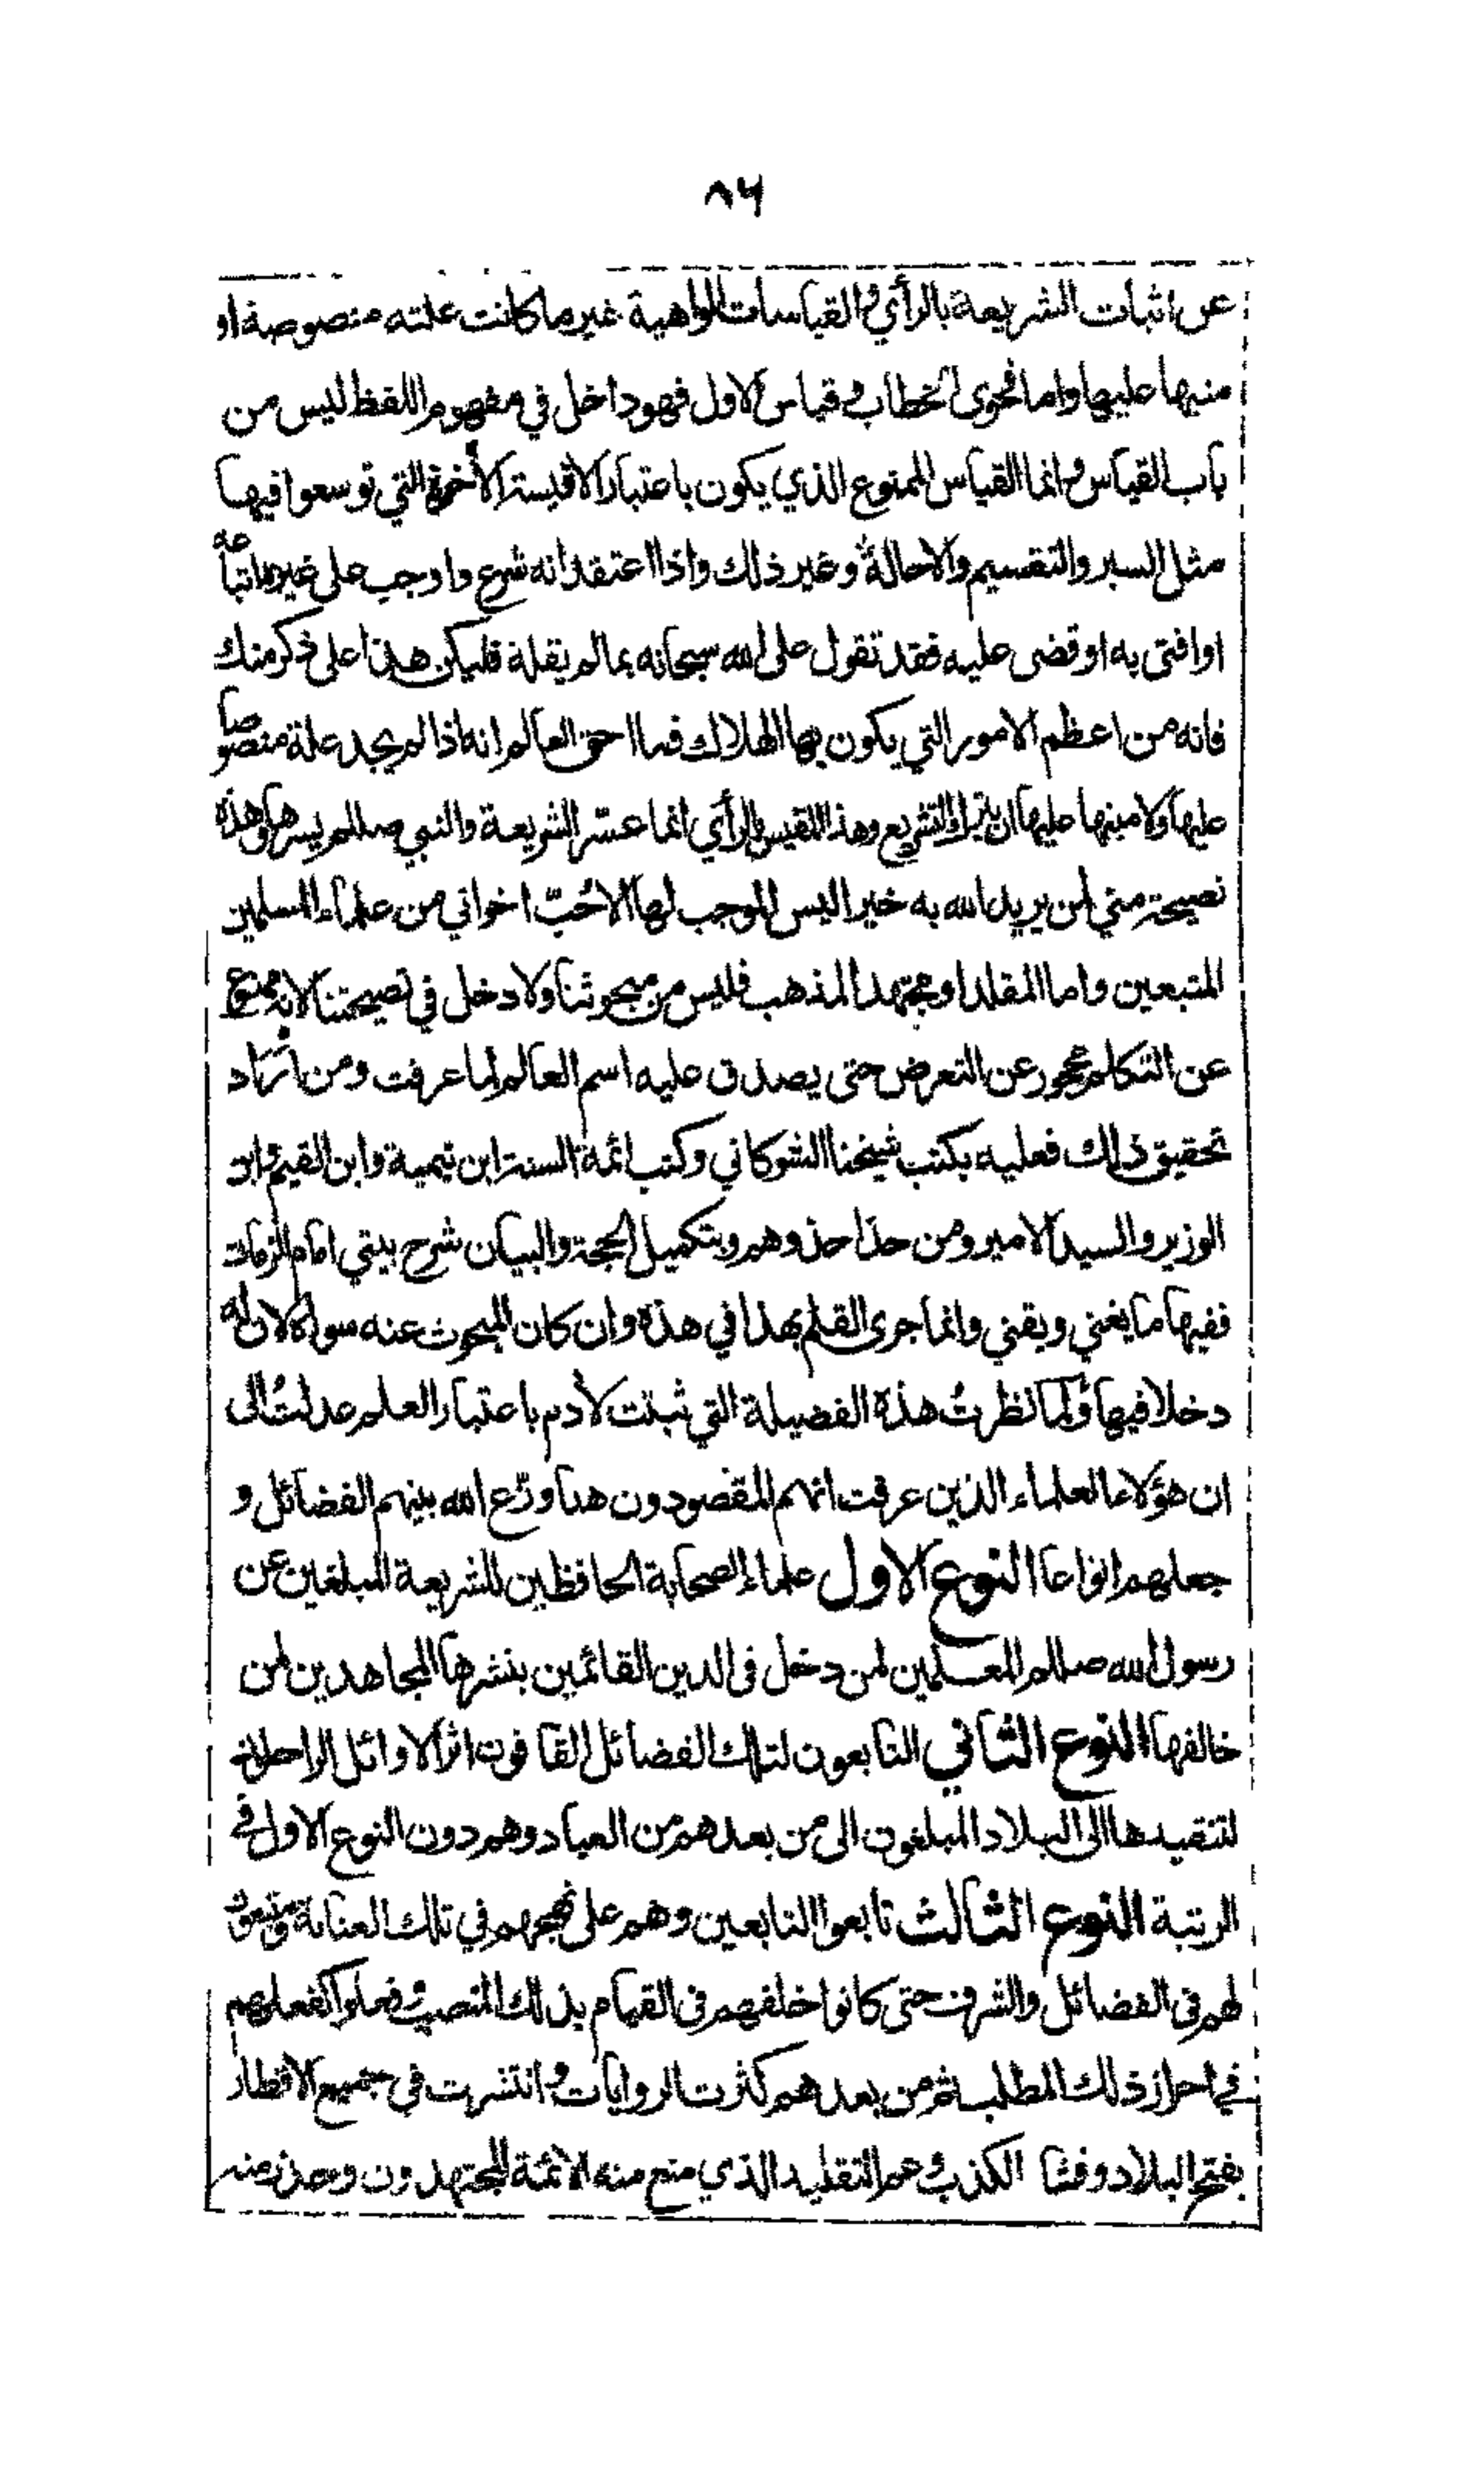 ٨٦
عن اثبات الشريعة بالرأي والقياسات الواهية غير ما كانت علته منصوصة او
منبها عليها واما فحوى الخطاب وقياس الاول فهو داخل في مفهوم اللفظ ليس من
باب القياس وانما القياس الممنوع الذي يكون باعتبار الاقيسة الأخرة التي توسعوا فيها
مثل السبر والتقسيم والاحالة وغير ذلك واذا اعتقد انه شرع واوجب على غيره اتباعه
او افتى به او قضى عليه فقد تقول على الله سبحانه بما لم يقلة فليكن هذا على ذكر منك
فانه من اعظم الامور التي يكون بها الهلاك فما احق العالم انه اذا لم يجد علة منصوصا
عليها ولا منبها عليها ان يترك التشريع وهذا التقيس بالرأي انما عسّر الشريعة والنبي صللم يسرها وهذه
نصيحة مني لمن يريد الله به خيرا ليس الموجب لها الا حُبّ اخواني من علماء المسلمين
المتبعين واما المقلد او مجتهد المذهب فليس من مبحوثنا ولا دخل في نصيحتنا لانه ممنوع
عن التكلم محجور عن التعرض حتى يصدق عليه اسم العالم لما عرفت ومن اراد
تحقيق ذلك فعليه بكتب شيخنا الشوكاني وكتب ائمة السنة ابن تيمية وابن القيم وابن
الوزير والسيد الامير ومن حذا حذوهم وبتكميل الحجة والبيان شرح بيتي امام الزمان
ففيها ما يغني ويقني وانما جرى القلم بهذا في هذه وان كان المبحوث عنه سواه لان له
دخلا فيها ولما نظرتُ هذه الفضيلة التي ثبتت لأدم باعتبار العلم عدلتُ الى
ان هؤلاء العلماء الذين عرفت انهم المقصودون هنا وزّع الله بينهم الفضائل و
جعلهم انواعا النوع الاول علماء الصحابة الحافظين للشريعة المبلغين عن
رسول الله صللم المعلمين لمن دخل في الدين القائمين بنشرها المجاهدين لمن
خالفها النوع الثاني التابعون لتلك الفضائل القافون اثر الاوائل الراحلون
لتنقيدها الى البلاد المبلغون الى من بعدهم من العباد وهم دون النوع الاول في
الرتبة النوع الثالث تابعوا التابعين وهم على نهجهم في تلك العناية
لهم في الفضائل والشرف حتى كانوا خلفهم في القيام بذلك المنصب وفعلوا كفعلهم
في احراز ذلك المطلب ثم من بعدهم كثرت الروايات وانتشرت في جميع الاقطار
بفتح البلاد وفشا الكذب وعم التقليد الذي منع منه الائمة المجتهدون